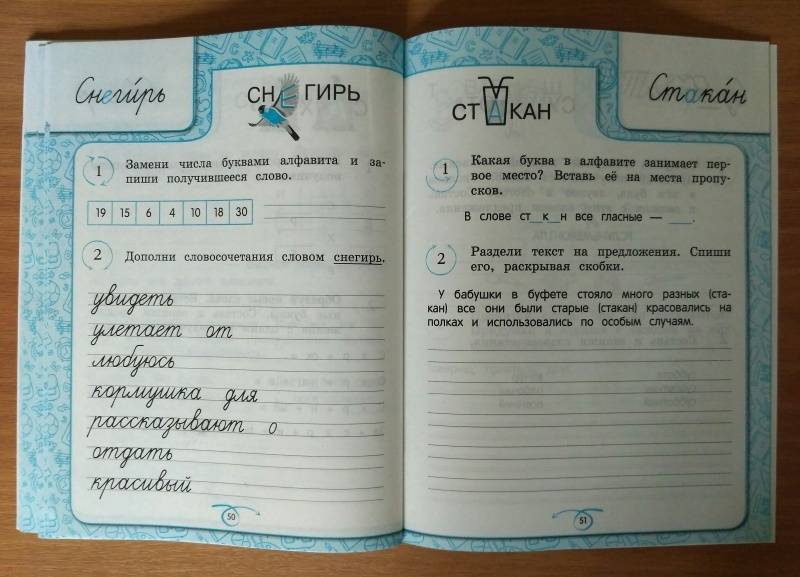 Снеги́рь
СНЕГИРЬ
1 Замени числа буквами алфавита и за-
пиши получившееся слово.
19 15 6 4 10 18 30
2 Дополни словосочетания словом снегирь.
увидеть
улетает от
любуюсь
кормушка для
рассказывают о
отдать
красивый
50
СТАКАН
Стака́н
1 Какая буква в алфавите занимает пер-
вое место? Вставь её на места пропу-
сков.
В слове ст__к__н все гласные — ____.
2 Раздели текст на предложения. Спиши
его, раскрывая скобки.
У бабушки в буфете стояло много разных (ста-
кан) все они были старые (стакан) красовались на
полках и использовались по особым случаям.
51